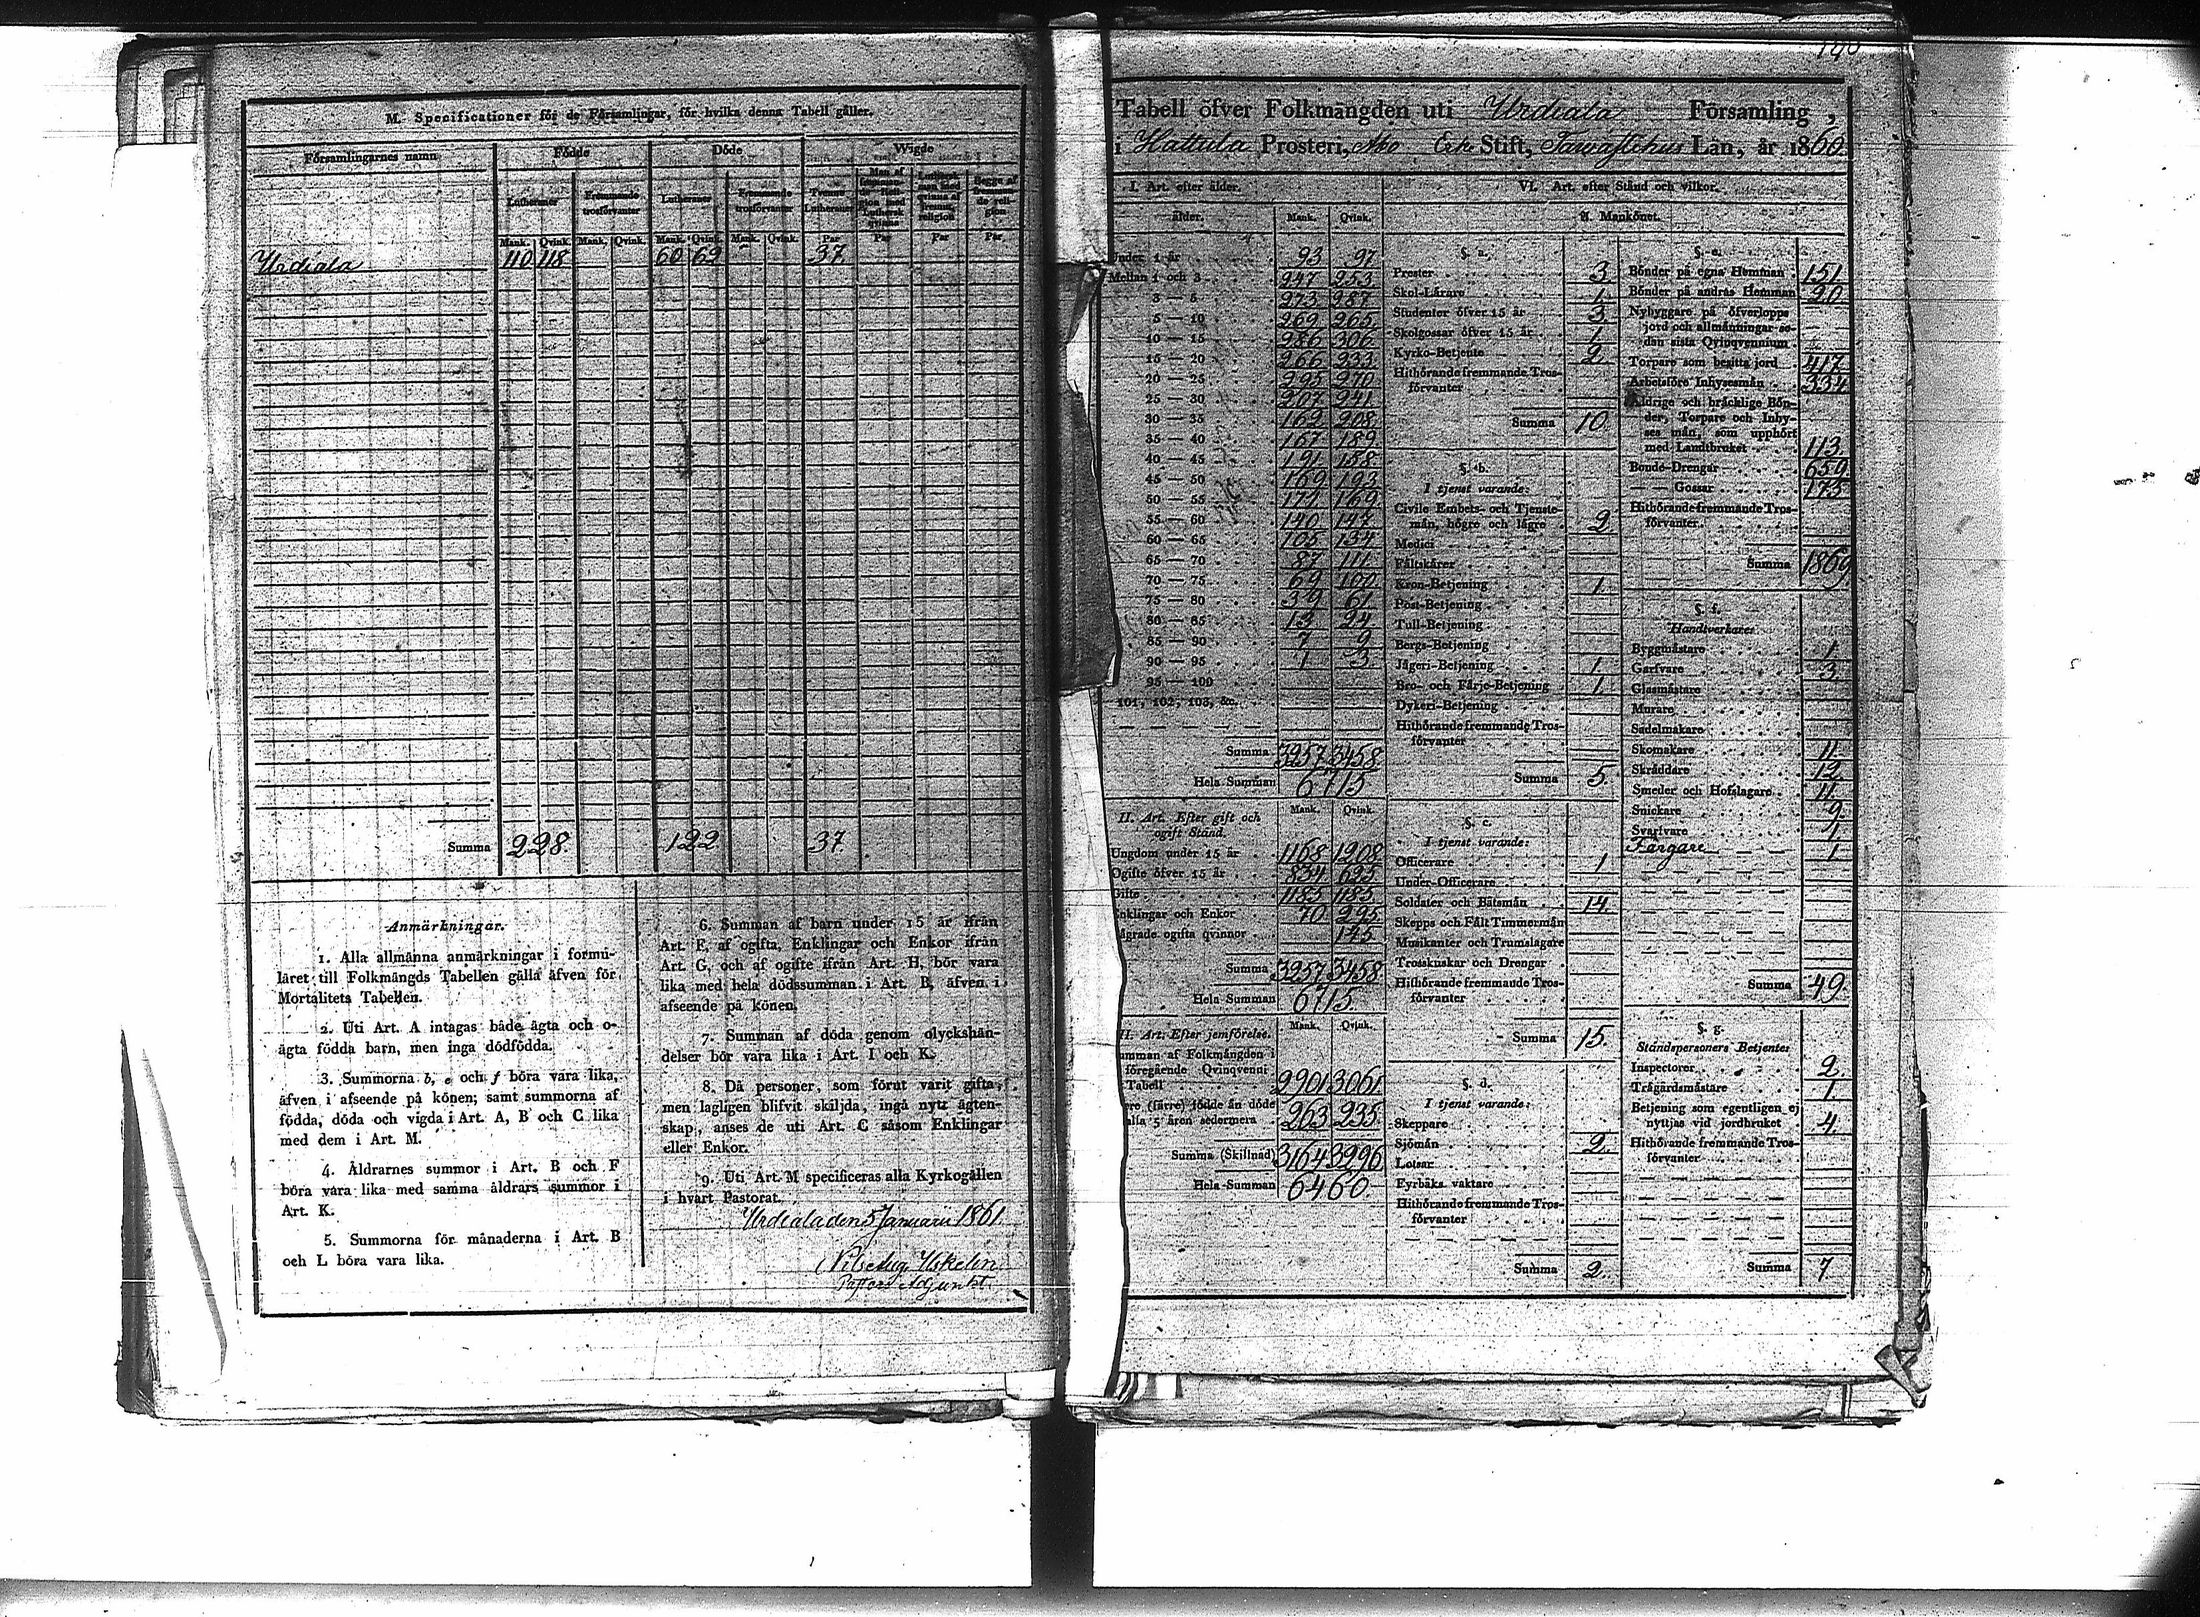 M. Specificationer för de Församlingar, för hvilka denna Tabell gäller.
Församlingarnes namn
Födde
Döde
Wigde
Lutheraner
Fremmande trosförvanter
Lutheraner
Fremmande trosförvanter
Tvenne Lutheraner
Mank. Qvink. Mank. Qvink. Mank. Qvink. Mank. Qvink. Par Par Par Par
Urdiala 110 118 60 62 37.
Summa 228. 122 37
Anmärkningar.
1. Alla allmänna anmärkningar i formu-
läret till Folkmängds Tabellen gälla äfven för
Mortalitets Tabellen.
2. Uti Art. A intagas både ägta och o-
ägta födda barn, men inga dödfödda.
3. Summorna b, e och f böra vara lika,
äfven i afseende på könen; samt summorna af
födda, döda och vigda i Art. A, B och C lika
med dem i Art. M.
4. Åldrarnes summor i Art. B och F
böra vara lika med samma åldrars summor i
Art. K.
5. Summorna för månaderna i Art. B
och L böra vara lika.
6. Summan af barn under 15 år ifrån
Art. E, af ogifta, Enklingar och Enkor ifrån
Art. G, och af ogifte ifrån Art. H, bör vara
lika med hela dödssumman i Art. B, äfven i
afseende på könen.
7. Summan af döda genom olyckshän-
delser bör vara lika i Art. I och K.
8. Då personer, som förut varit gifta,
men lagligen blifvit skiljda, ingå nytt ägten-
skap, anses de uti Art. C såsom Enklingar
eller Enkor.
9. Uti Art. M specificeras alla Kyrkogällen
i hvart Pastorat.
Urdiala den 5 Januarii 1861.
Nils Aug. Uskelin
Pastors Adjunkt.
Tabell öfver Folkmängden uti Urdiala Församling,
i Hattula Prosteri, Åbo Erke Stift, Tawastehus Län, år 1860.
I. Art. efter ålder.
ålder. Mank. Qvink.
Under 1 år 93 97
Mellan 1 och 3 247 253
3 — 5 273 287
5 — 10 269 265
10 — 15 286 306
15 — 20 266 233
20 — 25 295 270
25 — 30 207 241
30 — 35 162 208
35 — 40 167 189
40 — 45 191 158
45 — 50 169 193
50 — 55 171 169
55 — 60 140 147
60 — 65 105 134
65 — 70 87 111
70 — 75 69 100
75 — 80 39 61
80 — 85 13 24
85 — 90 7 9
90 — 95 1 3
95 — 100
101, 102, 103, &c.
Summa 3257 3458
Hela Summan 6715
II. Art. Efter gift och
ogift Stånd.
Mank. Qvink.
Ungdom under 15 år 1168 1208
Ogifte öfver 15 år 834 625
Gifte 1185 1185
Enklingar och Enkor 70 295
ägrade ogifta qvinnor 145
Summa 3257 3458
Hela Summan 6715.
II. Art. Efter jemförelse. Mank. Qvink.
umman af Folkmängden i
föregående Qvinqvenni
Tabell 2901 3061
re (färre) födde än döde
alla 5 åren sedermera 263 235
Summa (Skillnad) 3164 3296
Hela Summan 6460.
VI. Art. efter Stånd och vilkor.
A. Mankönet.
§. a.
Prester 3
Skol-Lärare 1
Studenter öfver 15 år 3
Skolgossar öfver 15 år 1
Kyrko-Betjente 2
Hithörande fremmande Tros-
förvanter
Summa 10
§. b.
I tjenst varande:
Civile Embets- och Tjenste-
män, högre och lägre 2
Medici
Fältskärer
Kron-Betjening 1
Post-Betjening
Tull-Betjening
Bergs-Betjening
Jägeri-Betjening 1
Bro- och Färje-Betjening 1
Dykeri-Betjening
Hithörande fremmande Tros-
förvanter
Summa 5.
§. c.
I tjenst varande:
Officerare 1
Under-Officerare
Soldater och Båtsmän 14.
Skepps och Fält Timmermän
Musikanter och Trumslagare
Trosskuskar och Drengar
Hithörande fremmande Tros-
förvanter
Summa 15.
§. d.
I tjenst varande:
Skeppare
Sjömän 2
Lotsar
Fyrbåks vaktare
Hithörande fremmande Tros-
förvanter
Summa 2.
§. e.
Bönder på egna Hemman 151
Bönder på andras Hemman 20
Nybyggare på öfverlopps
jord och allmänningar se-
dan sista Qvinqvennium
Torpare som besitta jord 417
Arbetsföre Inhysesmän 334
Åldrige och bräcklige Bön-
der, Torpare och Inhy-
ses män, som upphört
med Landtbruket 113.
Bonde-Drengar 659
— Gossar 175
Hithörande fremmande Tros-
förvanter
Summa 1869
§. f.
Handtverkare
Byggmästare 1
Garfvare 3
Glasmästare
Murare
Sadelmakare
Skomakare 11.
Skräddare 12
Smeder och Hofslagare 11.
Snickare 9.
Svarfvare 1
Färgare 1
Summa 49.
§. g.
Ståndspersoners Betjente:
Inspectorer 2.
Trägårdsmästare 1
Betjening som egentligen ej
nyttjas vid jordbruket 4
Hithörande fremmande Tros-
förvanter
Summa 7